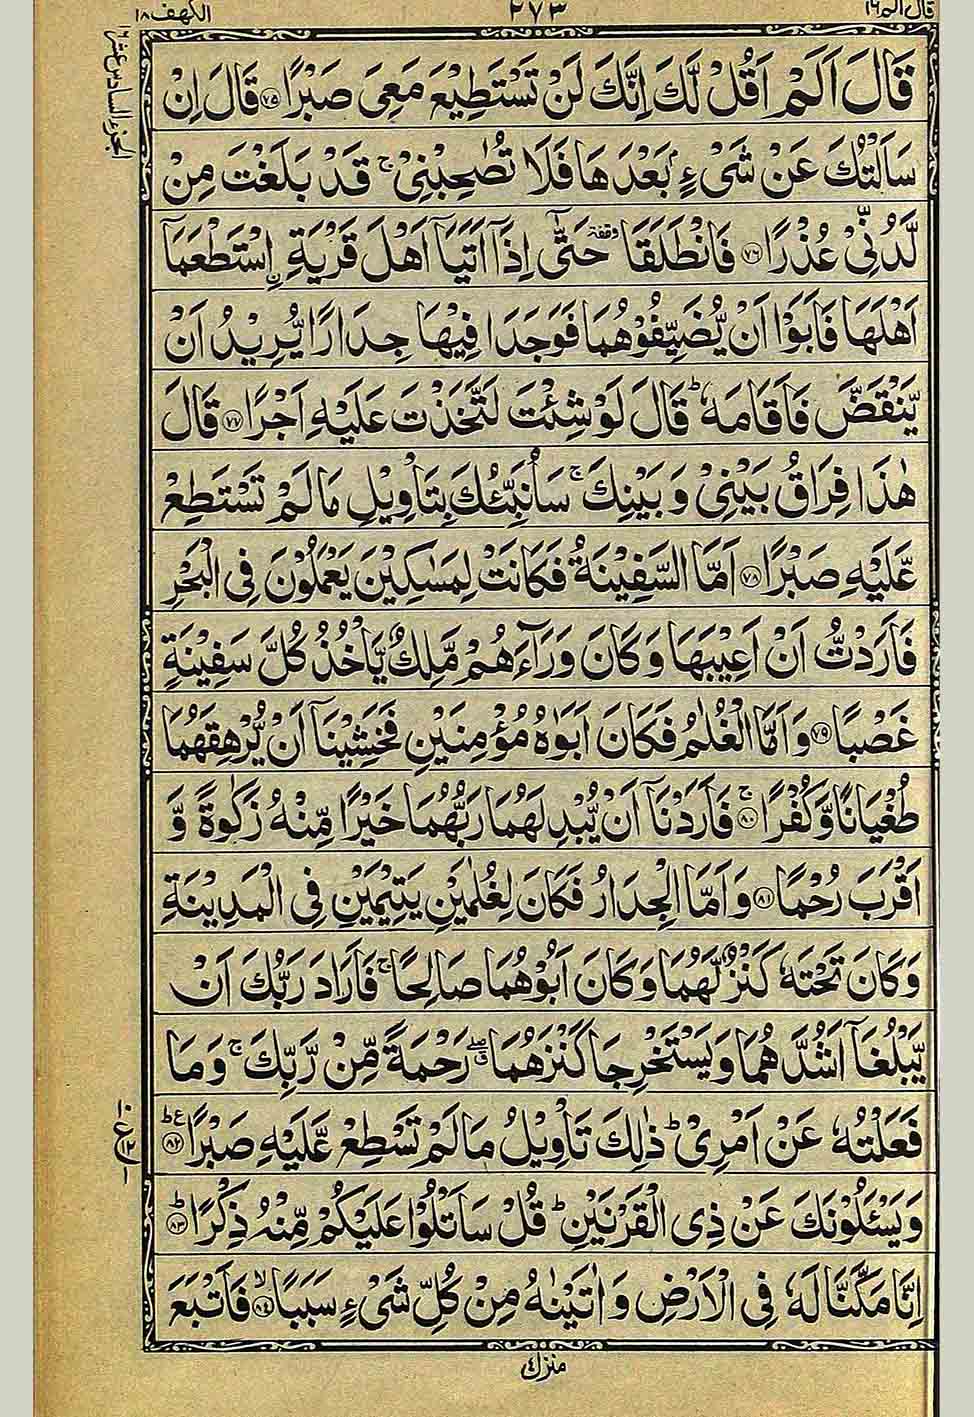 قال الم ١٦
٢٧٣
الكهف ١٨
قَالَ اَلَمْ اَقُلْ لَّكَ اِنَّكَ لَنْ تَسْتَطِيْعَ مَعِىَ صَبْرًا ۝٧٥ قَالَ اِنْ
سَاَلْتُكَ عَنْ شَىْءٍۭ بَعْدَهَا فَلَا تُصٰحِبْنِىْ ۚ قَدْ بَلَغْتَ مِنْ
لَّدُنِّىْ عُذْرًا ۝٧٦ فَانْطَلَقَا وقفة حَتّٰٓى اِذَآ اَتَيَآ اَهْلَ قَرْيَةِ ِۨاسْتَطْعَمَآ
اَهْلَهَا فَاَبَوْا اَنْ يُّضَيِّفُوْهُمَا فَوَجَدَا فِيْهَا جِدَارًا يُّرِيْدُ اَنْ
يَّنْقَضَّ فَاَقَامَهٗ ؕ قَالَ لَوْ شِئْتَ لَتَّخَذْتَ عَلَيْهِ اَجْرًا ۝٧٧ قَالَ
هٰذَا فِرَاقُ بَيْنِىْ وَ بَيْنِكَ ۚ سَاُنَبِّئُكَ بِتَاْوِيْلِ مَا لَمْ تَسْتَطِعْ
عَّلَيْهِ صَبْرًا ۝٧٨ اَمَّا السَّفِيْنَةُ فَكَانَتْ لِمَسٰكِيْنَ يَعْمَلُوْنَ فِى الْبَحْرِ
فَاَرَدْتُّ اَنْ اَعِيْبَهَا وَ كَانَ وَرَآءَهُمْ مَّلِكٌ يَّاْخُذُ كُلَّ سَفِيْنَةٍ
غَصْبًا ۝٧٩ وَ اَمَّا الْغُلٰمُ فَكَانَ اَبَوٰهُ مُؤْمِنَيْنِ فَخَشِيْنَآ اَنْ يُّرْهِقَهُمَا
طُغْيَانًا وَّ كُفْرًا ۚ۝٨٠ فَاَرَدْنَآ اَنْ يُّبْدِلَهُمَا رَبُّهُمَا خَيْرًا مِّنْهُ زَكٰوةً وَّ
اَقْرَبَ رُحْمًا ۝٨١ وَ اَمَّا الْجِدَارُ فَكَانَ لِغُلٰمَيْنِ يَتِيْمَيْنِ فِى الْمَدِيْنَةِ
وَ كَانَ تَحْتَهٗ كَنْزٌ لَّهُمَا وَ كَانَ اَبُوْهُمَا صَالِحًا ۚ فَاَرَادَ رَبُّكَ اَنْ
يَّبْلُغَآ اَشُدَّهُمَا وَ يَسْتَخْرِجَا كَنْزَهُمَا ۖ ق رَحْمَةً مِّنْ رَّبِّكَ ۚ وَ مَا
فَعَلْتُهٗ عَنْ اَمْرِىْ ؕ ذٰلِكَ تَاْوِيْلُ مَا لَمْ تَسْطِعْ عَّلَيْهِ صَبْرًا ؕع ۝٨٢
وَ يَسْئَلُوْنَكَ عَنْ ذِى الْقَرْنَيْنِ ؕ قُلْ سَاَتْلُوْا عَلَيْكُمْ مِّنْهُ ذِكْرًا ؕ۝٨٣
اِنَّا مَكَّنَّا لَهٗ فِى الْاَرْضِ وَ اٰتَيْنٰهُ مِنْ كُلِّ شَىْءٍ سَبَبًا ۙ۝٨٤ فَاَتْبَعَ
منزل ٤
الجزء السادس عشر